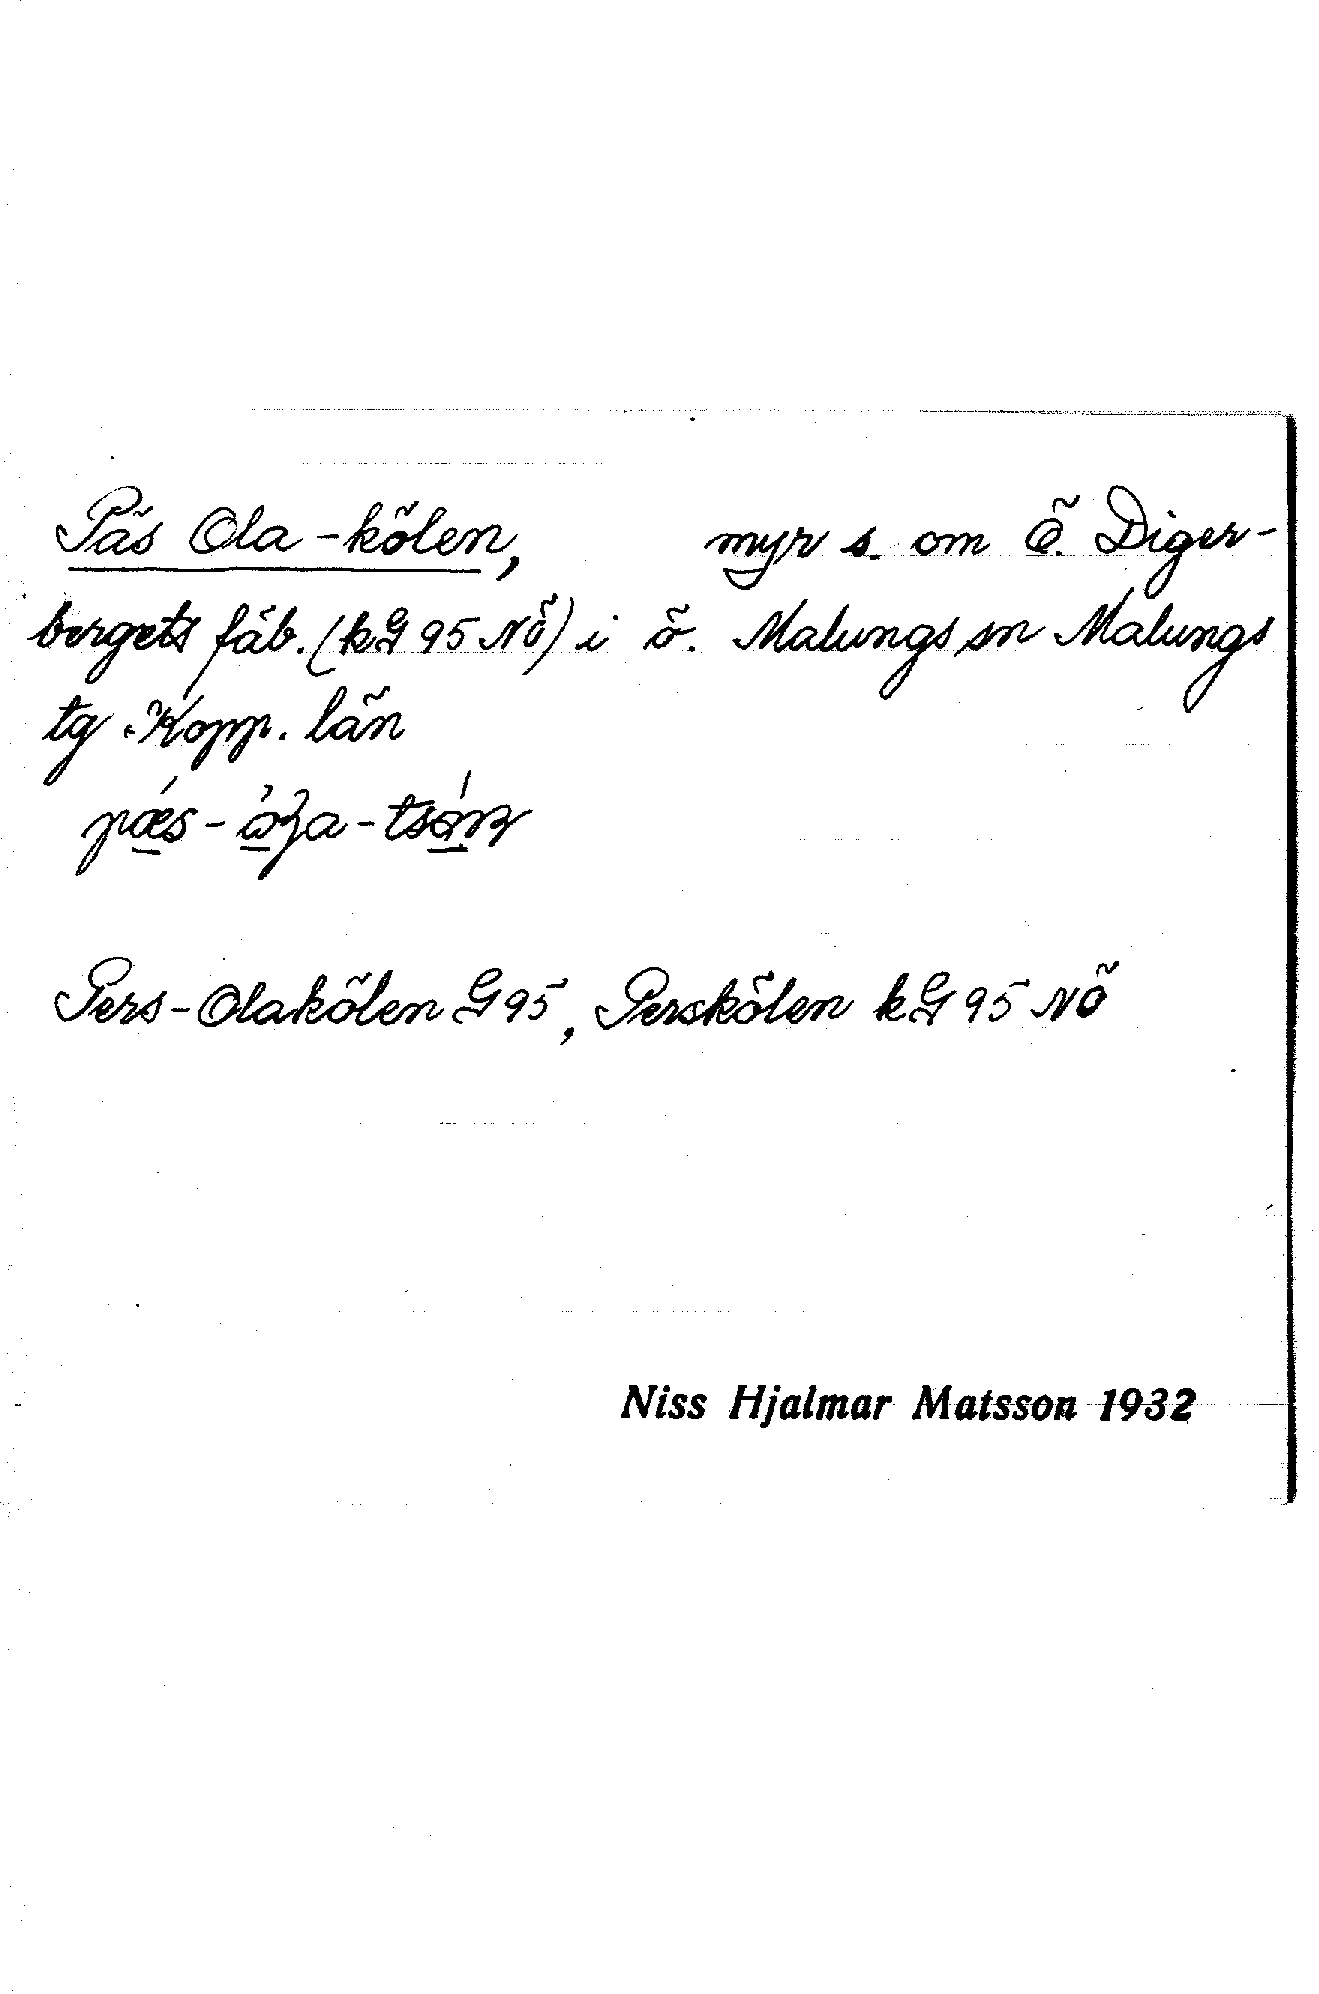 Päs Ola-kölen, myr s. om Ö. Diger-
bergets fäb. (kG 95 NÖ) i ö. Malungs sn Malungs
tg Kopp. län
Pers-Olakölen G95, Perskölen kG 95 NÖ
Niss Hjalmar Matsson 1932